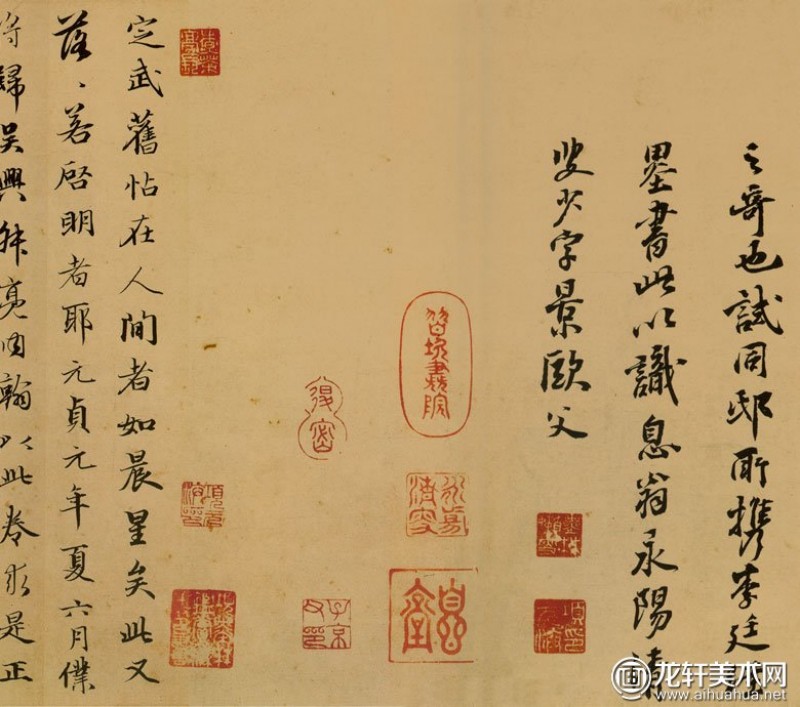 之奇也試同邸所攜李廷
墨書此以識息翁永陽清
叟少字景歐父
子京父印
定武舊帖在人間者如晨星矣此又
落〻若啓明者耶元貞元年夏六月僕
將歸吳興 亮内翰以此卷求是正
画 龙轩美术网
www.aihuahua.net